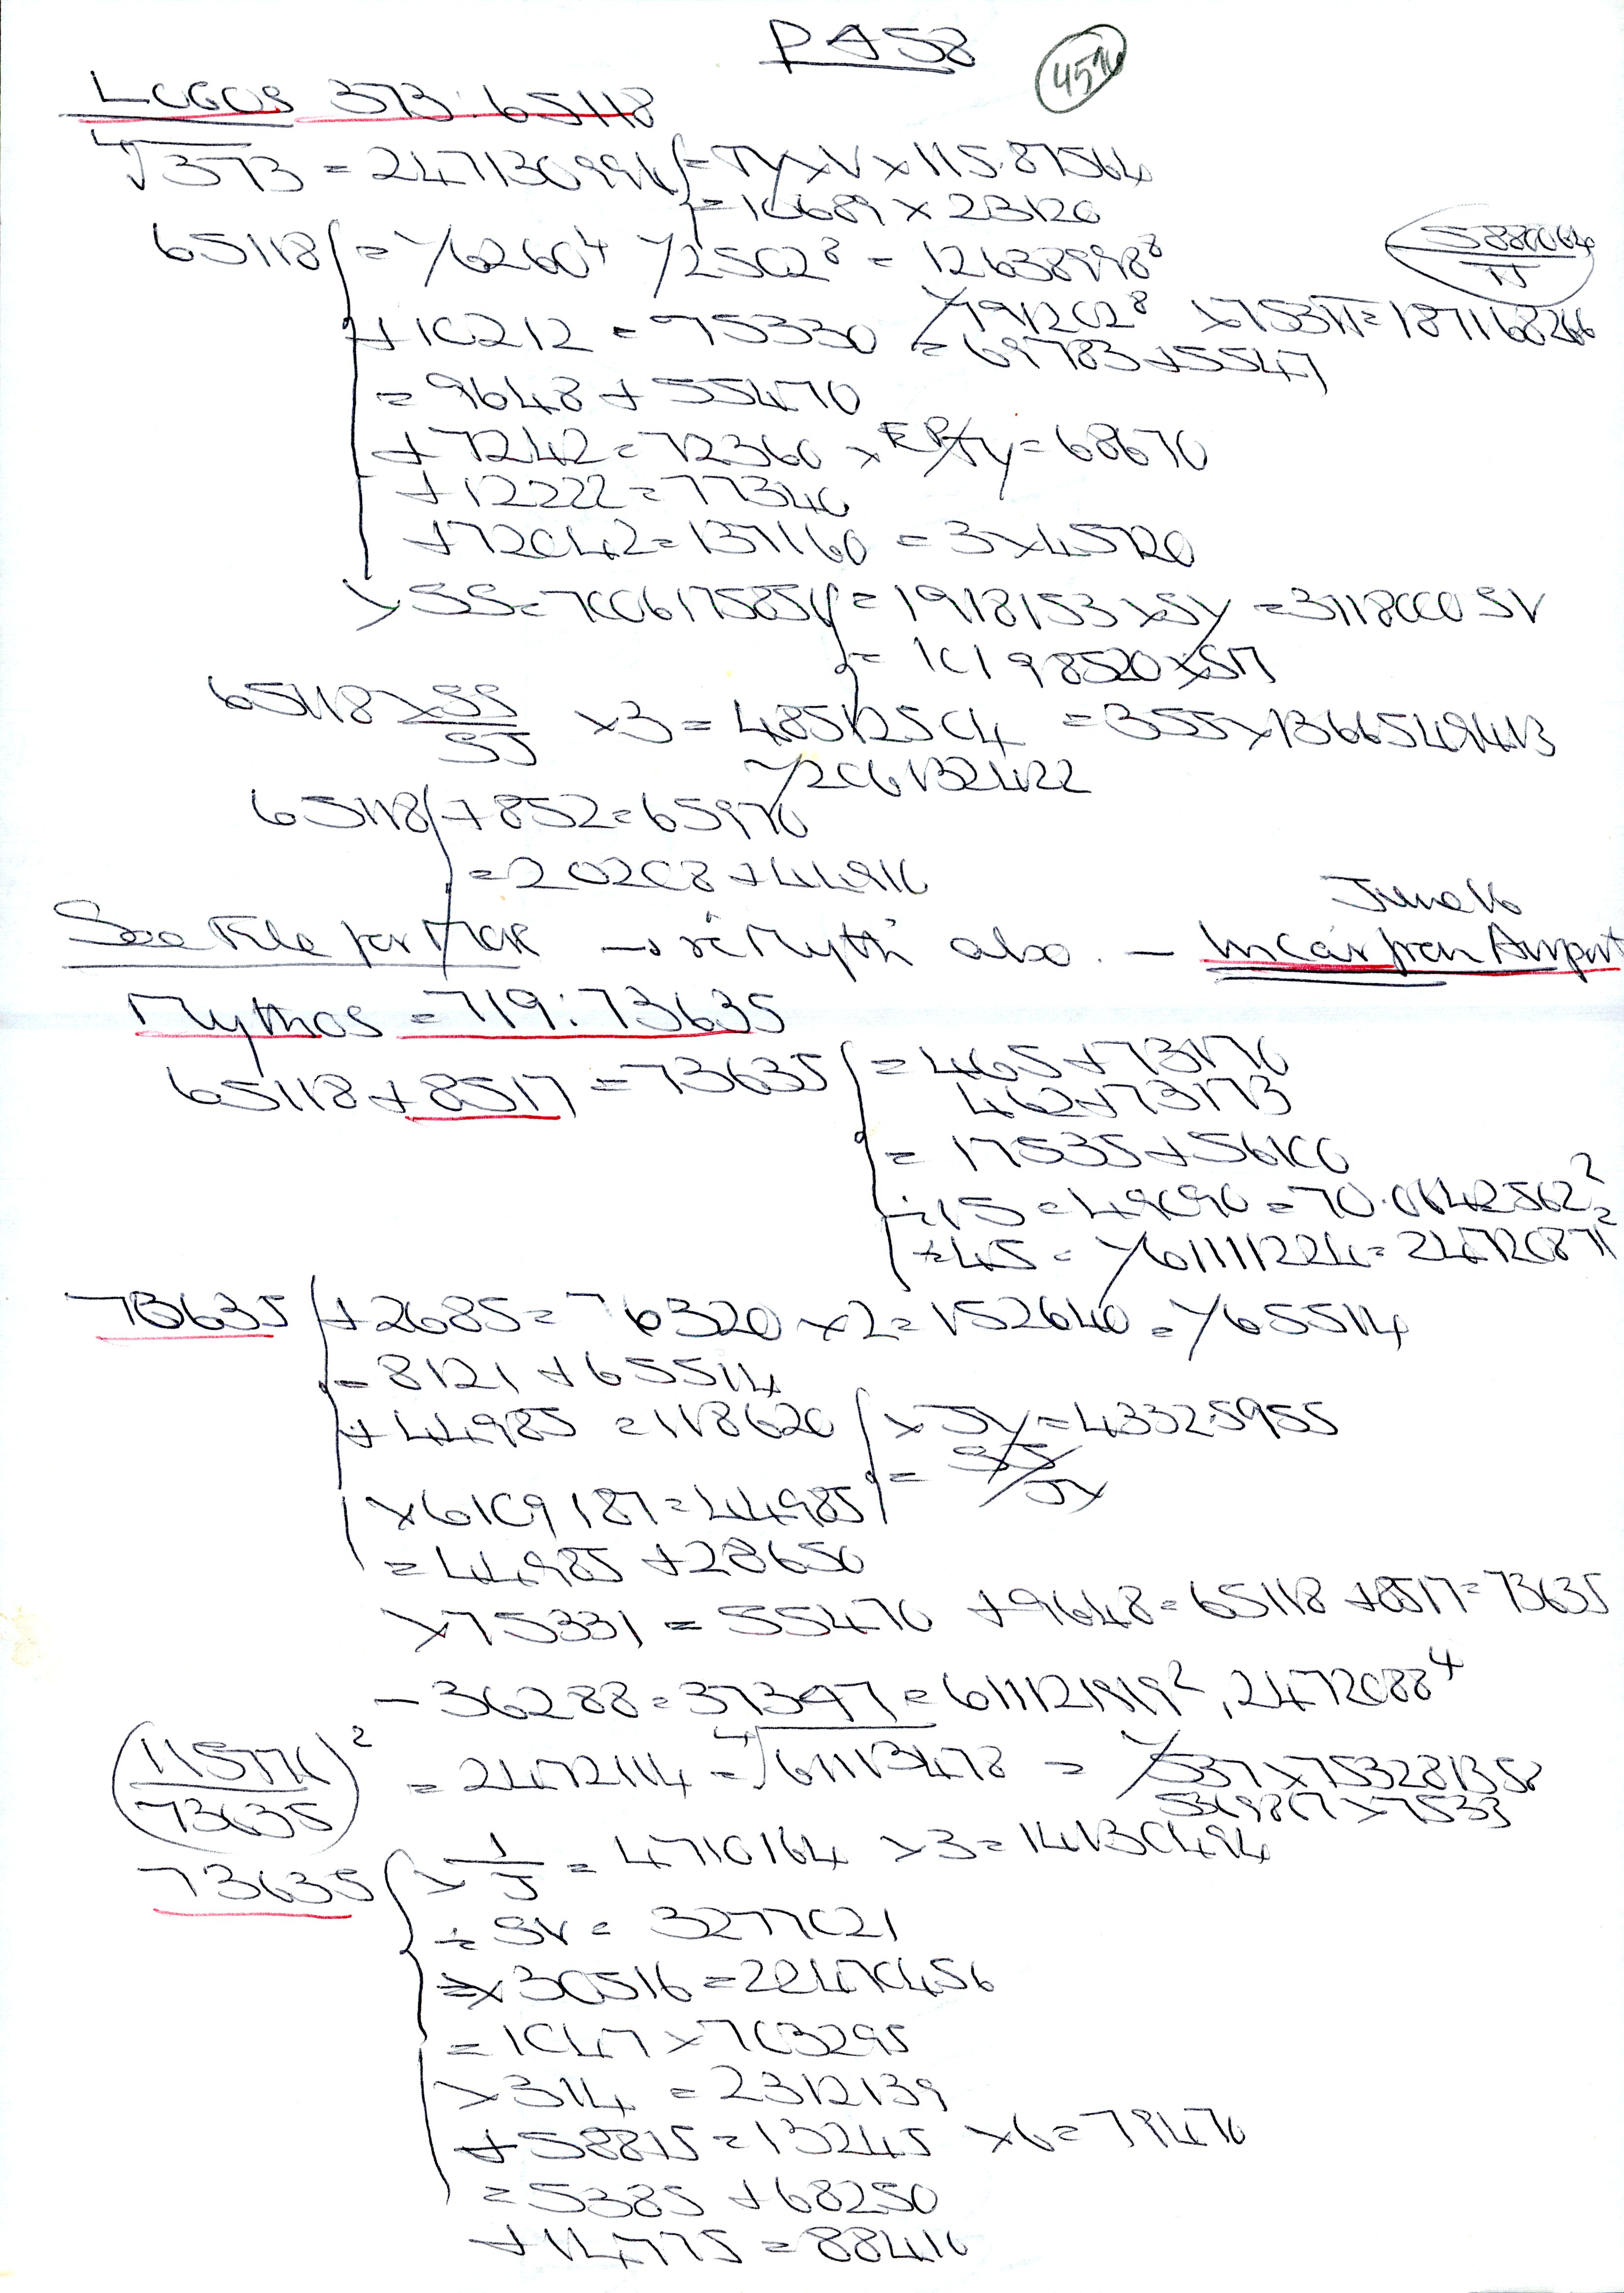 PA58
4516
LOGOS 373:65118
∜373 = 2471309916 = JY × V × 115.87564
= 10689 × 23120
65118 = Y6260⁴ Y2502⁸ = 12638998⁸
588064/π
Y791202⁸ × 753π = 187168266
+ 10212 = 75330 = 69783 + 5547
= 9648 + 55470
+ 7242 = 72360 × = 68670
+ 12222 = 77340
+ 72042 = 137160 = 3 × 45720
× SS = 7006175854 = 1918153 × SY = 3118000 SV
= 10198520 × Sπ
65118 × SS/SJ × 3 = 48512504 = 355 × 1366549413
Y206132422
65118 + 852 = 65970
= 20208 + 44910
June 16
See File for MOR → re 'Myth' also. — In Car from Airport
Mythos = 719:73635
65118 + 8517 = 73635 = 465 + 73170
462 + 73173
= 17535 + 56100
÷ 15 = 49090 = 70.0642562² =
÷ 45 = Y61111224 = 247120871
73635 + 2685 = 76320 × 2 = 152640 = Y65514
= 8121 + 65514
+ 44985 = 118620 × JY = 43325955
= SS/JY
× 6109187 = 44985
= 44985 + 28650
× 75331 = 55470 + 9648 = 65118 + 8517 = 73635
− 36288 = 37347 = 611121919², 2472088⁴
(115771/73635)² = 2472114 = ∜61113478 = Y537 × 753281358
5369867 × 7533
73635 × 1/J = 4710164 × 3 = 14130494
÷ SV = 3277021
× 30516 = 22470456
= 1047 × 703295
× 314 = 2312139
+ 58815 = 13245 × 6 = 79470
= 5385 + 68250
+ 14775 = 88410